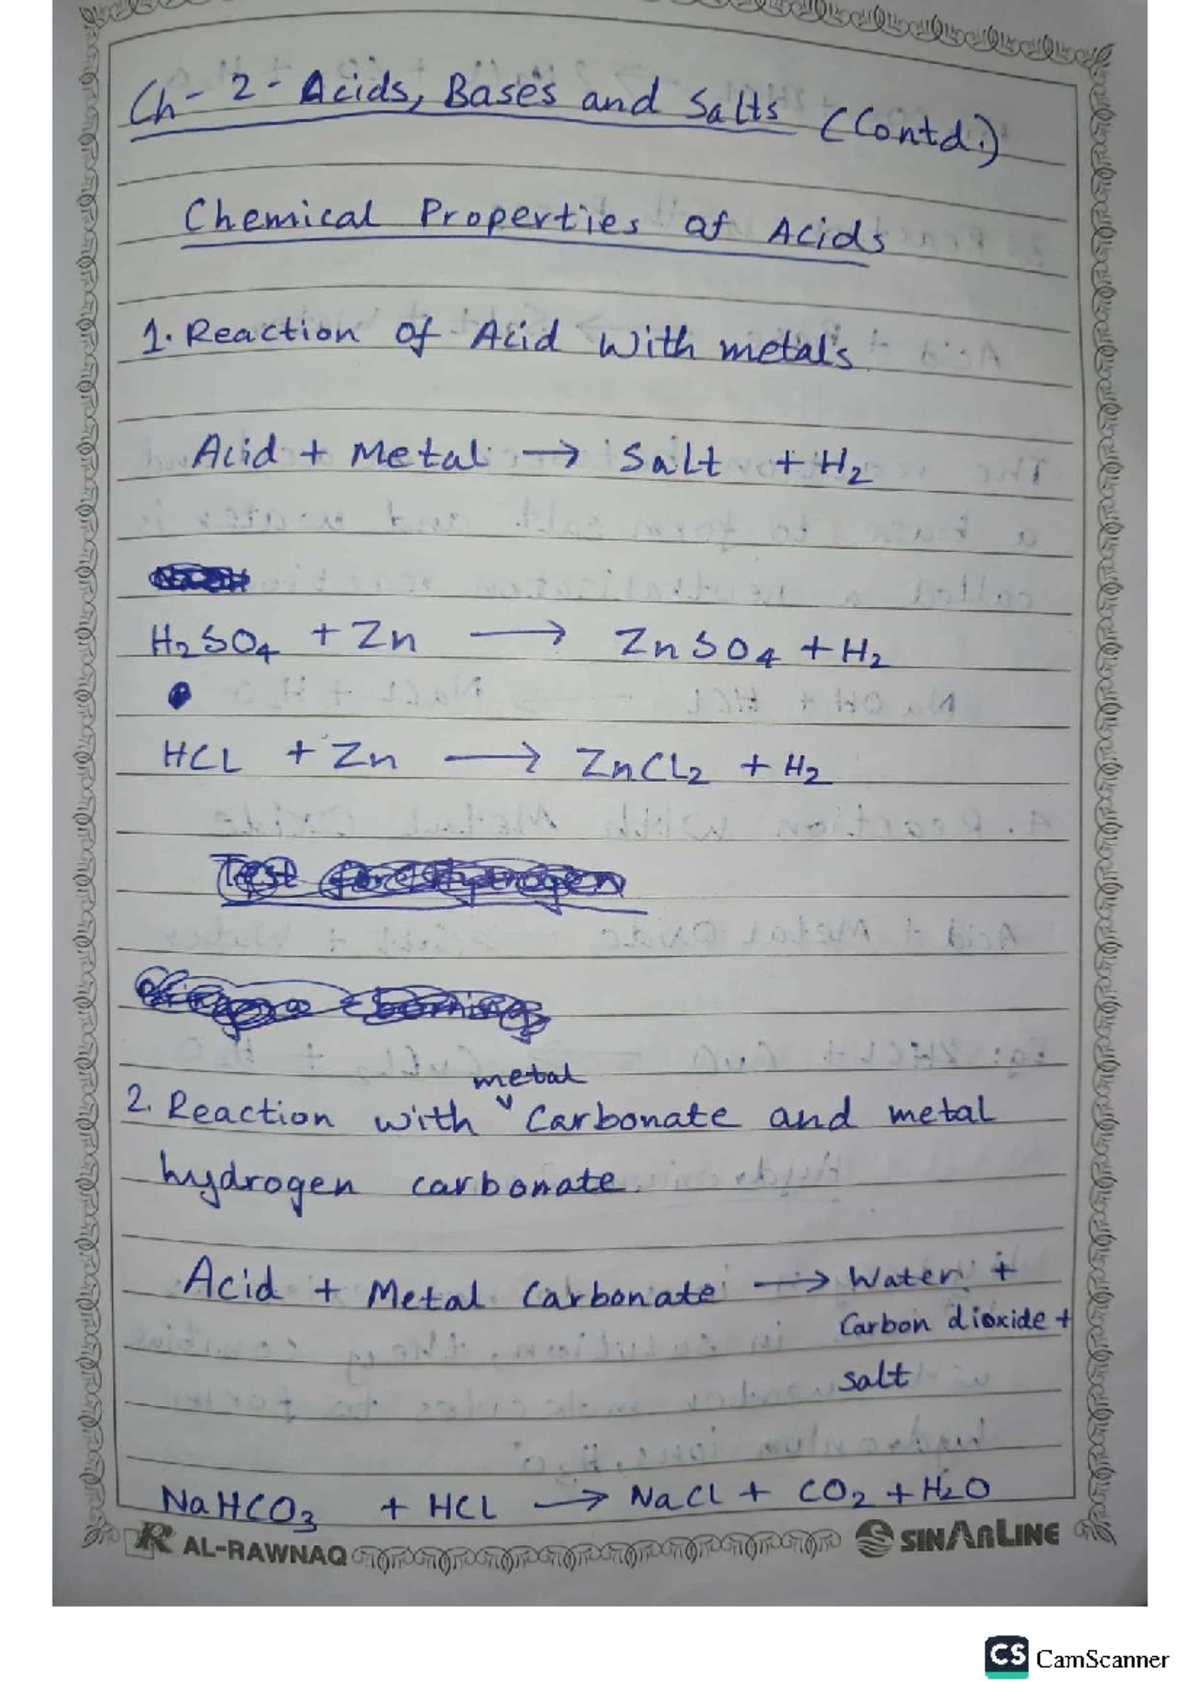 Ch- 2 - Acids, Bases and Salts (Contd.)
Chemical Properties of Acids
1. Reaction of Acid With metals
Acid + Metal → Salt + H2
H2SO4 + Zn → ZnSO4 + H2
HCL + Zn → ZnCL2 + H2
Test for Hydrogen
metal
2. Reaction with Carbonate and metal
hydrogen carbonate.
Acid + Metal Carbonate → Water +
Carbon dioxide +
salt
NaHCO3 + HCL → NaCl + CO2 + H2O
AL-RAWNAQ
SINARLINE
CS CamScanner